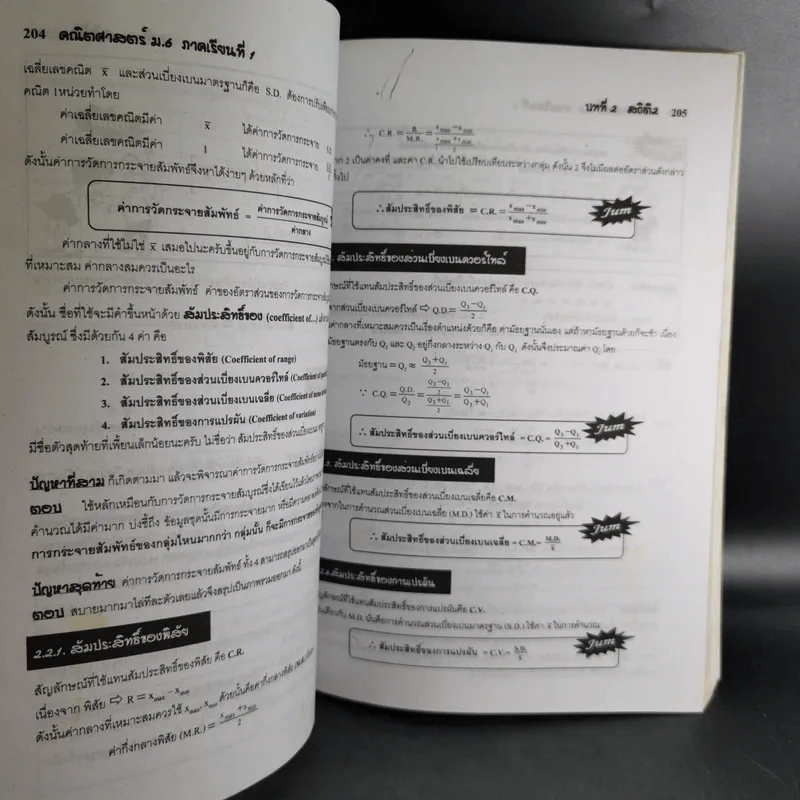 204 คณิตศาสตร์ ม.6 ภาคเรียนที่ 1
เฉลี่ยเลขคณิต x̄ และส่วนเบี่ยงเบนมาตรฐานก็คือ S.D. ต้องการปรับ
คณิต 1หน่วยทำโดย
ค่าเฉลี่ยเลขคณิตมีค่า x̄ ได้ค่าการวัดการกระจาย
ค่าเฉลี่ยเลขคณิตมีค่า 1 ได้ค่าการวัดการกระจาย
ดังนั้นค่าการวัดการกระจายสัมพัทธ์จึงหาได้ง่ายๆ ด้วยหลักที่ว่า
ค่าการวัดการกระจายสัมพัทธ์ = ค่าการวัดการกระจายสัมบูรณ์ / ค่ากลาง
ค่ากลางที่ใช้ไม่ใช่ x̄ เสมอไปนะครับขึ้นอยู่กับการวัดการกระจายสัมบูรณ์
ที่เหมาะสม ค่ากลางสมควรเป็นอะไร
ค่าการวัดการกระจายสัมพัทธ์ ค่าของอัตราส่วนของการวัดการกระจาย
ดังนั้น ชื่อที่ใช้จะมีคำขึ้นหน้าด้วย สัมประสิทธิ์ของ (coefficient of...)
สัมบูรณ์ ซึ่งมีด้วยกัน 4 ค่า คือ
1. สัมประสิทธิ์ของพิสัย (Coefficient of range)
2. สัมประสิทธิ์ของส่วนเบี่ยงเบนควอร์ไทล์ (Coefficient of
3. สัมประสิทธิ์ของส่วนเบี่ยงเบนเฉลี่ย (Coefficient of mean
4. สัมประสิทธิ์ของการแปรผัน (Coefficient of variation)
มีชื่อตัวสุดท้ายที่เพี้ยนเล็กน้อยนะครับ ไม่ชื่อว่า สัมประสิทธิ์ของส่วนเบี่ยงเบน
ปัญหาที่สาม ก็เกิดตามมา แล้วจะพิจารณาค่าการวัดการกระจายสัมพัทธ์
ตอบ ใช้หลักเหมือนกับการวัดการกระจายสัมบูรณ์ซึ่งได้เขียนไว้แล้ว
คำนวณได้มีค่ามาก บ่งชี้ถึง ข้อมูลชุดนั้นมีการกระจายมาก
การกระจายสัมพัทธ์ของกลุ่มไหนมากกว่า กลุ่มนั้น ก็จะมีการกระจาย
ปัญหาสุดท้าย ค่าการวัดการกระจายสัมพัทธ์ ทั้ง 4 สามารถสรุปออกมา
ตอบ สบายมากมาไล่ทีละตัวเลยแล้วจึงสรุปเป็นภาพรวมออกมา ดังนี้
2.2.1. สัมประสิทธิ์ของพิสัย
สัญลักษณ์ที่ใช้แทนสัมประสิทธิ์ของพิสัย คือ C.R.
เนื่องจาก พิสัย ⇨ R = xmax − xmin
ดังนั้นค่ากลางที่เหมาะสมควรใช้ xmax, xmin ด้วยนั่นคือค่ากึ่งกลางพิสัย (M.R.)
ค่ากึ่งกลางพิสัย (M.R.) = (xmax + xmin) / 2
บทที่ 2 สถิติ2 205
∴ C.R. = R / M.R. =
าก 2 เป็นค่าคงที่ และค่า C.R. นำไปใช้เปรียบเทียบระหว่างกลุ่ม ดังนั้น 2 จึงไม่มีผลต่ออัตราส่วนดังกล่าว
∴ สัมประสิทธิ์ของพิสัย = C.R. = (xmax − xmin) / (xmax + xmin) Jum
สัมประสิทธิ์ของส่วนเบี่ยงเบนควอร์ไทล์
ักษณ์ที่ใช้แทนสัมประสิทธิ์ของส่วนเบี่ยงเบนควอร์ไทล์ คือ C.Q.
ากส่วนเบี่ยงเบนควอร์ไทล์ ⇨ Q.D. = (Q3−Q1) / 2
ค่ากลางที่เหมาะสมควรเป็นเรื่องตำแหน่งด้วยก็คือ ค่ามัธยฐานนั่นเอง แต่ถ้าหามัธยฐานด้วยก็จะช้า เนื่อง
มัธยฐานตรงกับ Q2 และ Q2 อยู่กึ่งกลางระหว่าง Q1 กับ Q3 ดังนั้นจึงประมาณค่า Q2 โดย
มัธยฐาน = Q2 ≈ (Q3+Q1) / 2
∵ C.Q. = Q.D. / Q2 = ((Q3−Q1) / 2) / ((Q3+Q1) / 2) = (Q3−Q1) / (Q3+Q1)
∴ สัมประสิทธิ์ของส่วนเบี่ยงเบนควอร์ไทล์ = C.Q. = (Q3−Q1) / (Q3+Q1) Jum
3. สัมประสิทธิ์ของส่วนเบี่ยงเบนเฉลี่ย
ักษณ์ที่ใช้แทนสัมประสิทธิ์ของส่วนเบี่ยงเบนเฉลี่ยคือ C.M.
จากในการคำนวณส่วนเบี่ยงเบนเฉลี่ย (M.D.) ใช้ค่า x̄ ในการคำนวณอยู่แล้ว
∴ สัมประสิทธิ์ของส่วนเบี่ยงเบนเฉลี่ย = C.M. = M.D. / x̄ Jum
2.4. สัมประสิทธิ์ของการแปรผัน
ักษณ์ที่ใช้แทนสัมประสิทธิ์ของการแปรผันคือ C.V.
นเดียวกับ M.D. นั่นคือการคำนวณส่วนเบี่ยงเบนมาตรฐาน (S.D.) ใช้ค่า x̄ ในการคำนวณ
∴ สัมประสิทธิ์ของการแปรผัน = C.V. = S.D. / x̄ Jum